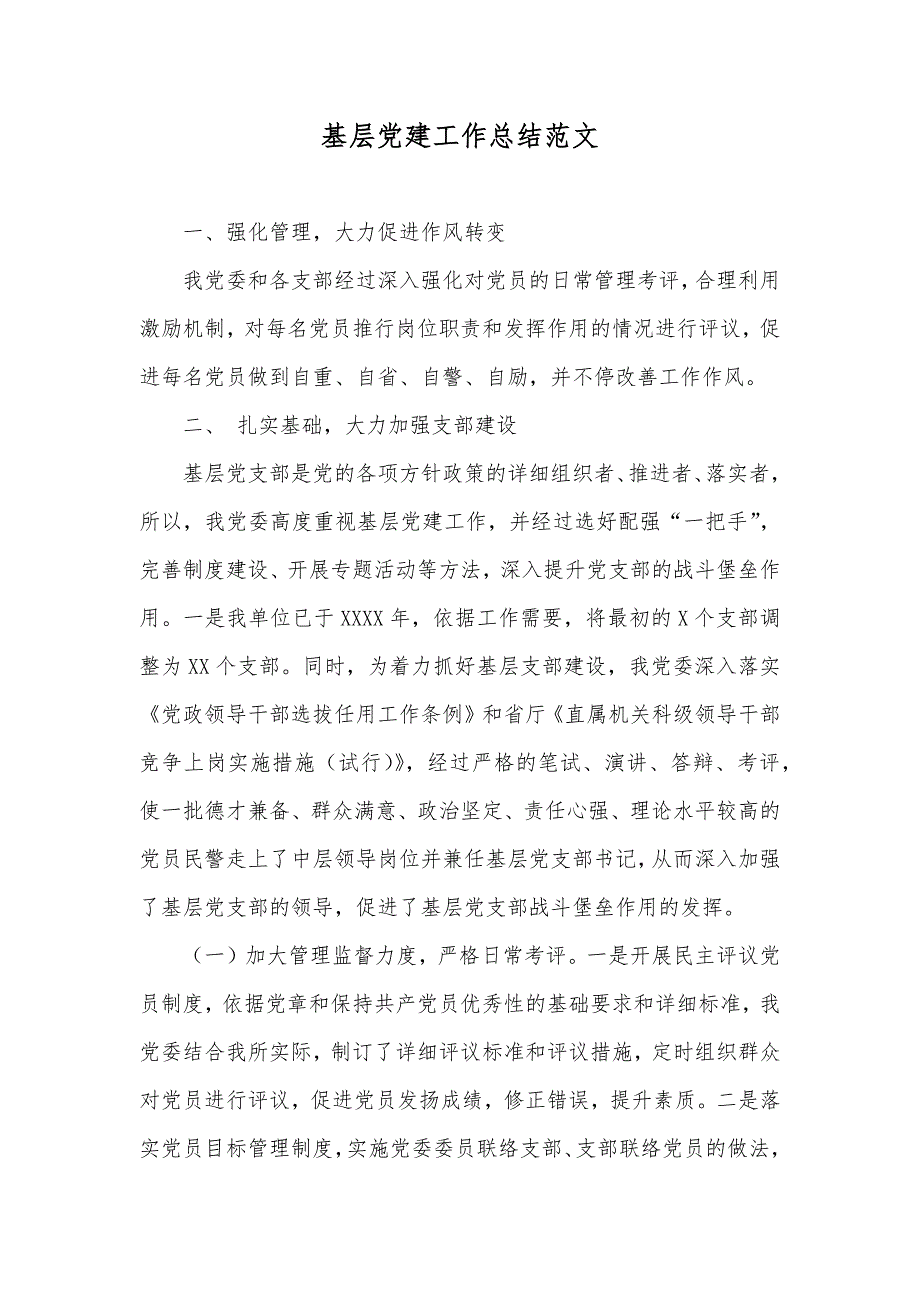 基层党建工作总结范文
一、强化管理，大力促进作风转变
我党委和各支部经过深入强化对党员的日常管理考评，合理利用
激励机制，对每名党员推行岗位职责和发挥作用的情况进行评议，促
进每名党员做到自重、自省、自警、自励，并不停改善工作作风。
二、 扎实基础，大力加强支部建设
基层党支部是党的各项方针政策的详细组织者、推进者、落实者，
所以，我党委高度重视基层党建工作，并经过选好配强“一把手”，
完善制度建设、开展专题活动等方法，深入提升党支部的战斗堡垒作
用。一是我单位已于 XXXX 年，依据工作需要，将最初的 X 个支部调
整为 XX 个支部。同时，为着力抓好基层支部建设，我党委深入落实
《党政领导干部选拔任用工作条例》和省厅《直属机关科级领导干部
竞争上岗实施措施（试行）》，经过严格的笔试、演讲、答辩、考评，
使一批德才兼备、群众满意、政治坚定、责任心强、理论水平较高的
党员民警走上了中层领导岗位并兼任基层党支部书记，从而深入加强
了基层党支部的领导，促进了基层党支部战斗堡垒作用的发挥。
（一）加大管理监督力度，严格日常考评。一是开展民主评议党
员制度，依据党章和保持共产党员优秀性的基础要求和详细标准，我
党委结合我所实际，制订了详细评议标准和评议措施，定时组织群众
对党员进行评议，促进党员发扬成绩，修正错误，提升素质。二是落
实党员目标管理制度，实施党委委员联络支部、支部联络党员的做法，